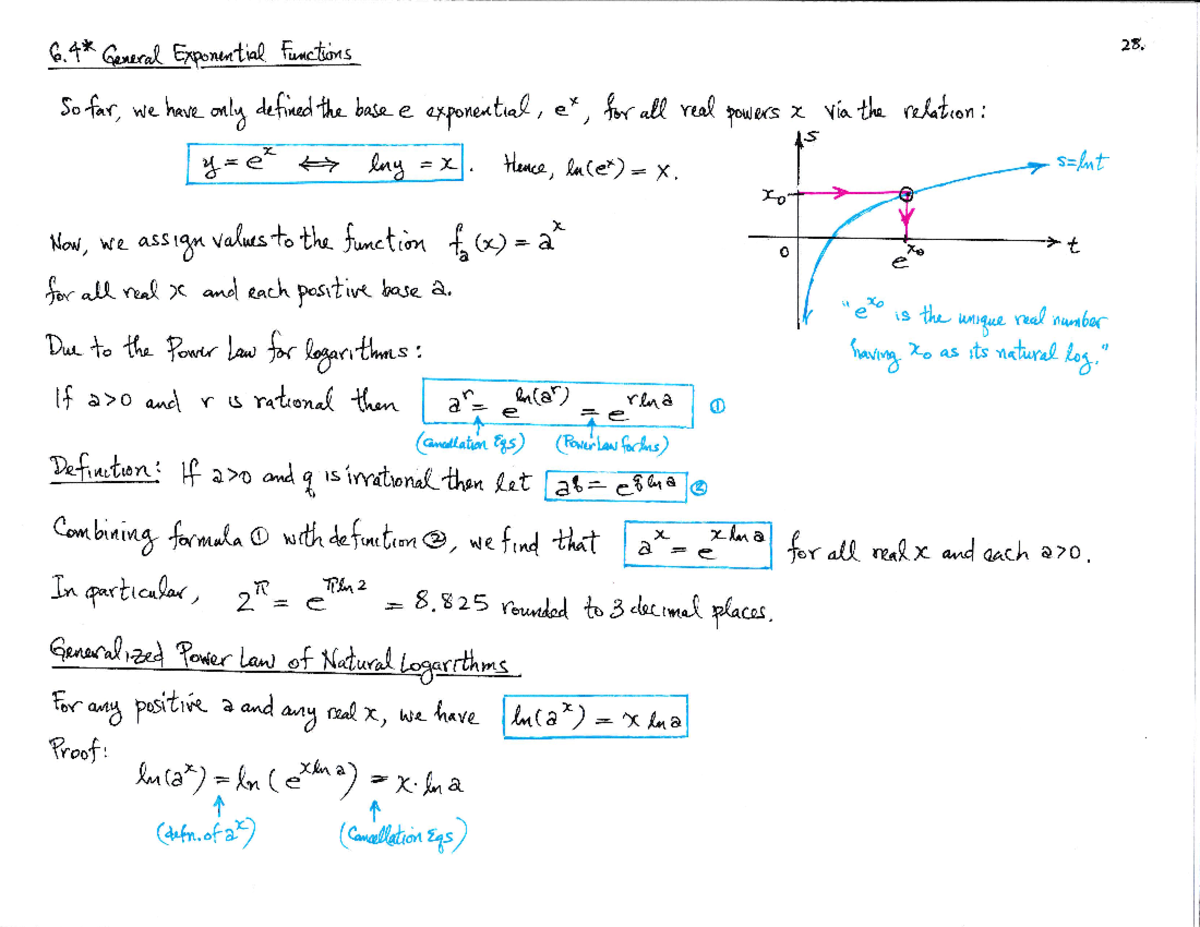 28.
6.4* General Exponential Functions
So far, we have only defined the base e exponential, eˣ, for all real powers x via the relation:
y = eˣ ⟺ ln y = x. Hence, ln(eˣ) = x.
s
s=ln t
x₀
0
e^x₀
t
"e^x₀ is the unique real number
having x₀ as its natural log."
Now, we assign values to the function fₐ(x) = aˣ
for all real x and each positive base a.
Due to the Power Law for logarithms:
If a>0 and r is rational then aʳ = e^ln(aʳ) = e^(r ln a) ①
(Cancellation Eqs) (Power Law for lns)
Definition: If a>0 and q is irrational then let a^q = e^(q ln a) ②
Combining formula ① with definition ②, we find that aˣ = e^(x ln a) for all real x and each a>0.
In particular, 2^π = e^(π ln 2) = 8.825 rounded to 3 decimal places.
Generalized Power Law of Natural Logarithms
For any positive a and any real x, we have ln(aˣ) = x ln a
Proof:
ln(aˣ) = ln(e^(x ln a)) = x·ln a
(defn. of aˣ) (Cancellation Eqs)